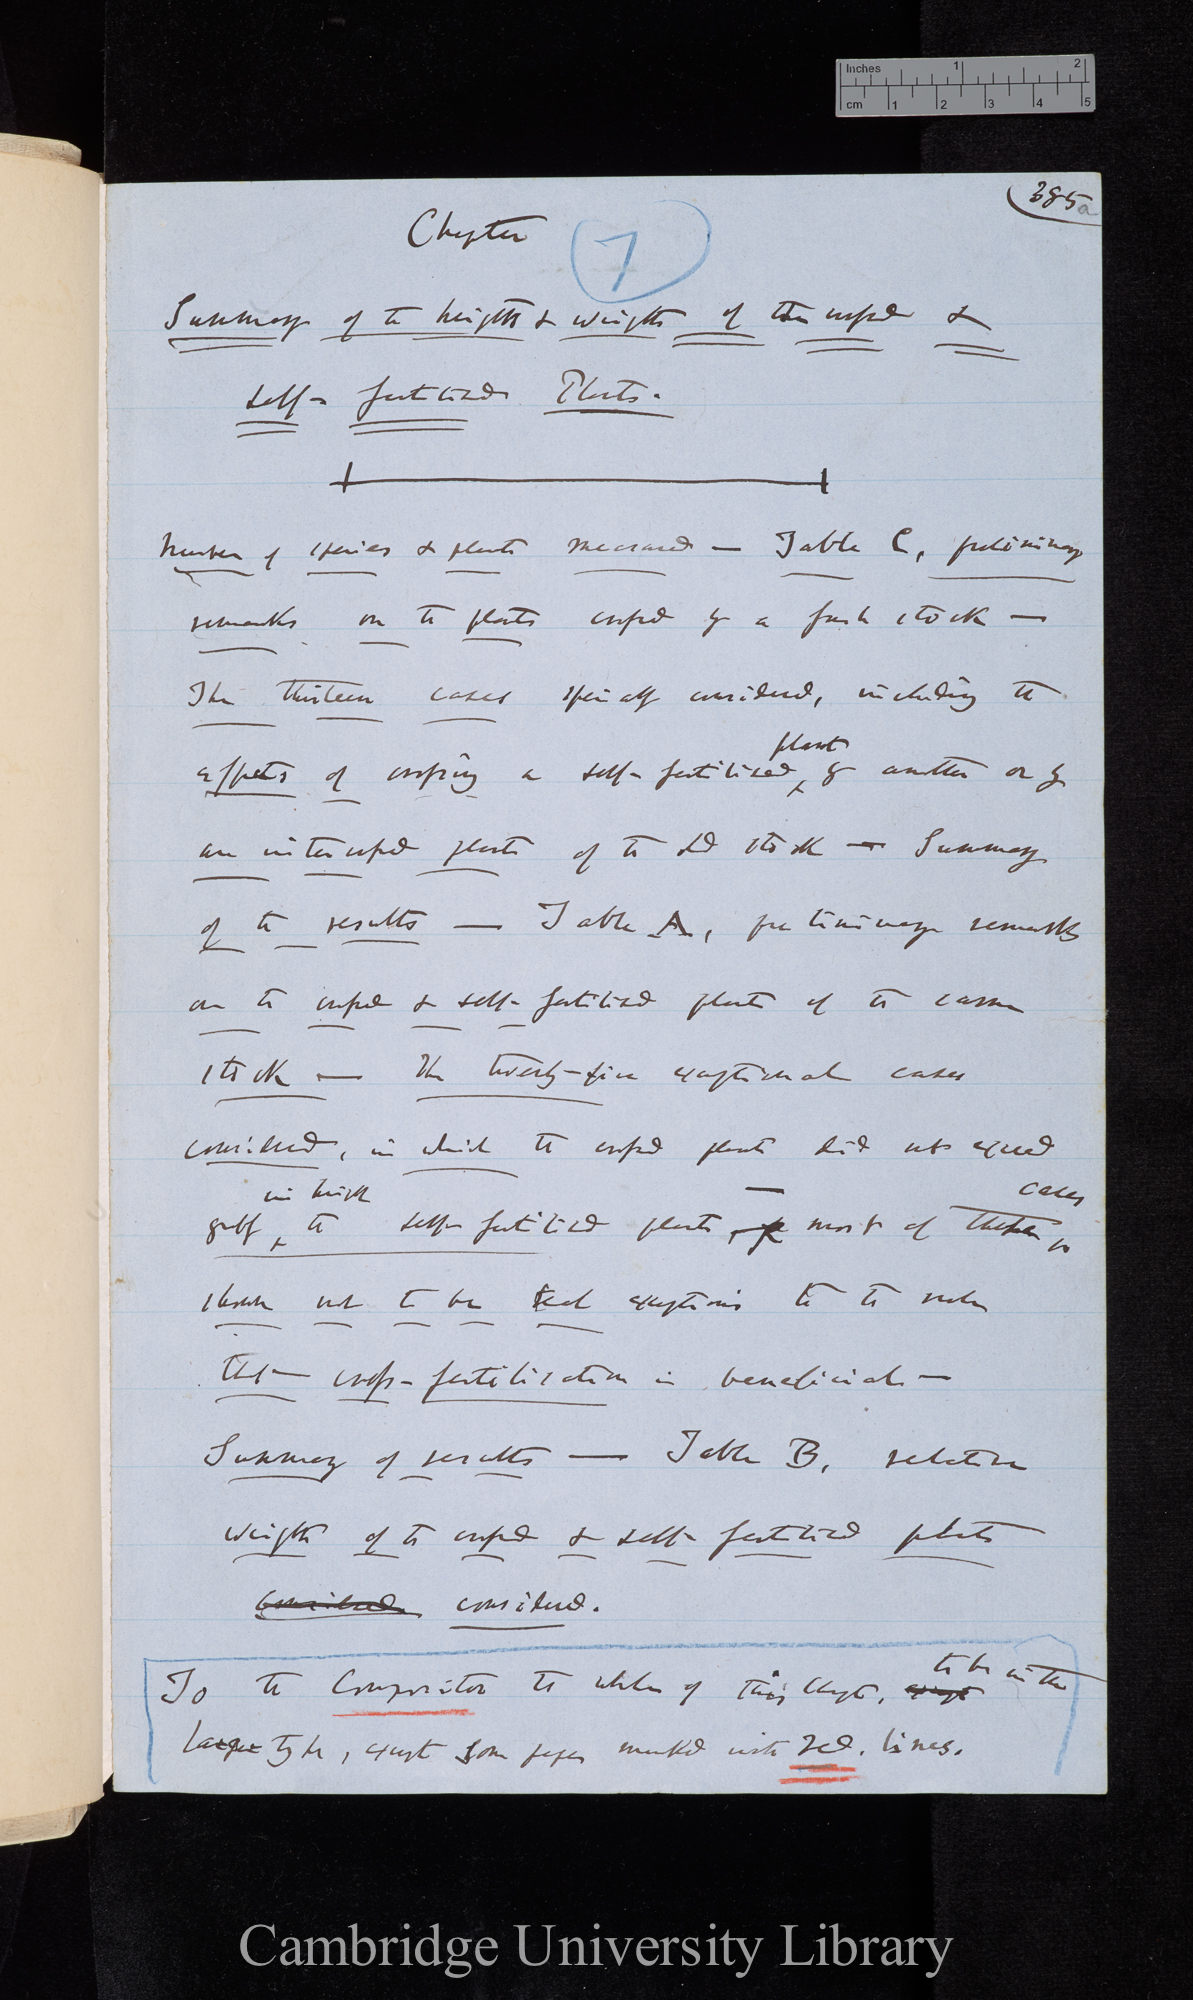 Inches 1 2
cm 1 2 3 4 5
385a
Chapter 7
Summary of the heights & weights of the crossed &
self-fertilised Plants.
Number of species & plants measured — Table C, preliminary
remarks on the plants crossed by a fresh stock —
The thirteen cases specially considered, including the
effects of crossing a self-fertilised plant by another or by
an intercrossed plant of the old stock — Summary
of the results — Table A, preliminary remarks
on the crossed & self-fertilised plants of the same
stock — The twenty-five exceptional cases
considered, in which the crossed plants did not exceed
greatly in height the self-fertilised plants, — most of these cases
shown not to be real exceptions to the rule
that cross-fertilisation is beneficial —
Summary of results — Table B, relative
weights of the crossed & self-fertilised plants
considered considered.
To the Compositor the whole of this Chapt, except to be in the
larger type, except some pages marked with red. lines.
Cambridge University Library